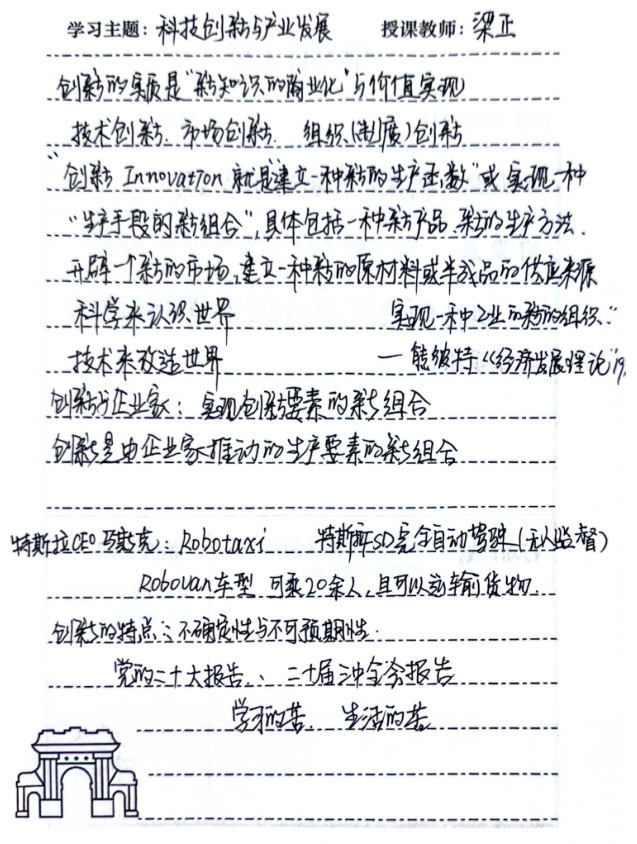 学习主题: 科技创新与产业发展 授课教师: 梁正
创新的实质是"新知识的商业化"与价值实现
技术创新、市场创新、组织(制度)创新
"创新 Innovation 就是"建立一种新的生产函数"或 实现一种
"生产手段的新组合", 具体包括一种新产品、新的生产方法、
开辟一个新的市场,建立一种新的原材料或半成品的供应来源
科学来认识世界 实现一种工业的新的组织:"
技术来改造世界 — 熊彼特《经济发展理论》19
创新与企业家: 实现创新要素的新组合
创新是由企业家推动的生产要素的新组合
特斯拉CEO 马斯克: Robotaxi 特斯FSD完全自动驾驶(无人监督)
Robovan车型 可乘20余人,且可以运输货物
创新的特点: 不确定性与不可预期性.
党的二十大报告、 二十届三中全会报告
学习的苦、 生活的苦